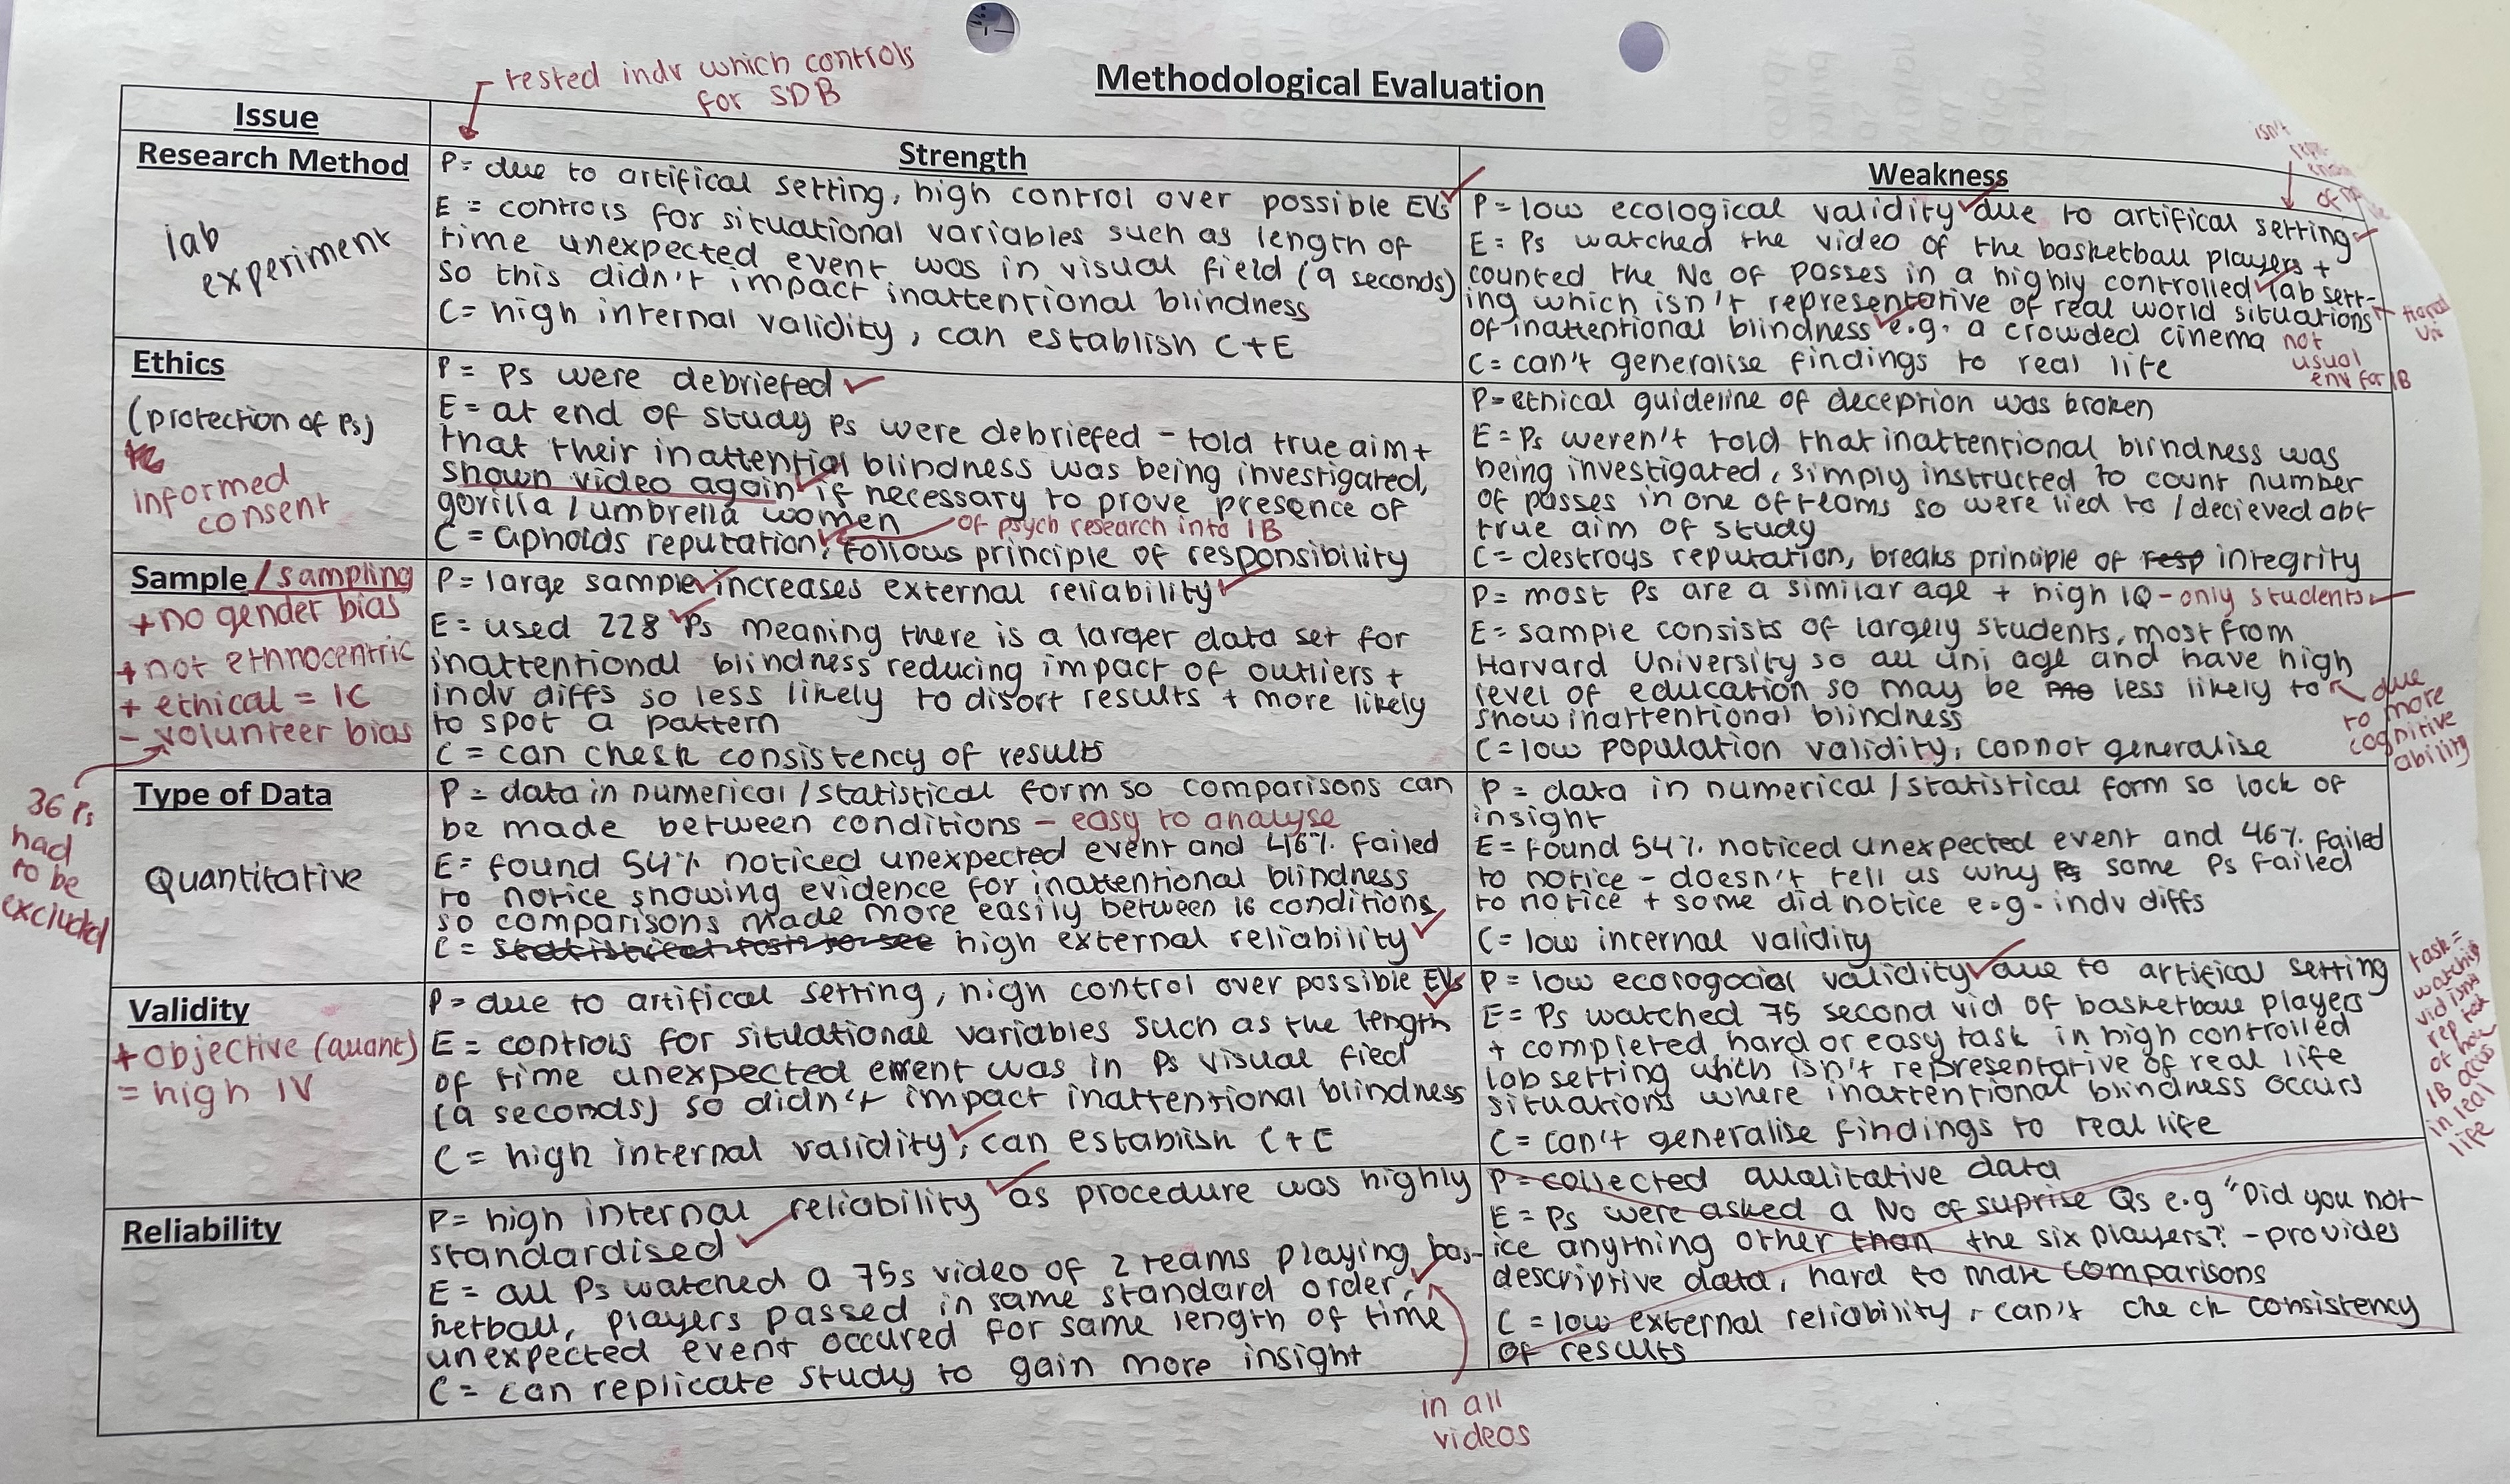 Methodological Evaluation
tested indv which controls
for SDB
Issue
Strength
Weakness
Research Method
lab
experiment
P= due to artifical setting, high control over possible EVs
E = controls for situational variables such as length of
time unexpected event was in visual field (9 seconds)
so this didn't impact inattentional blindness
C= high internal validity, can establish C+E
isn't
of
P= low ecological validity due to artifical setting
E= Ps watched the video of the basketball players +
counted the No of passes in a highly controlled lab sett-
ing which isn't representative of real world situations
of inattentional blindness e.g. a crowded cinema
C= can't generalise findings to real life
not
usual
env for IB
Ethics
(protection of Ps)
informed
consent
P= Ps were debriefed
E= at end of study Ps were debriefed - told true aim +
that their inattential blindness was being investigated,
shown video again if necessary to prove presence of
gorilla / umbrella women
of psych research into IB
C = upholds reputation, follows principle of responsibility
P= ethical guideline of deception was broken
E= Ps weren't told that inattentional blindness was
being investigated, simply instructed to count number
of passes in one of teams so were lied to / decieved abt
true aim of study
C= destroys reputation, breaks principle of resp integrity
Sample / sampling
+ no gender bias
+ not ethnocentric
+ ethical = IC
- volunteer bias
36 Ps
had
to be
excluded
P= large sample increases external reliability
E= used 228 Ps meaning there is a larger data set for
inattentional blindness reducing impact of outliers +
indv diffs so less likely to distort results + more likely
to spot a pattern
C= can check consistency of results
P= most Ps are a similar age + high IQ - only students
E= sample consists of largely students, most from
Harvard University so all uni age and have high
level of education so may be less likely to
show inattentional blindness
C= low population validity, cannot generalise
due
to more
cognitive
ability
Type of Data
Quantitative
P = data in numerical / statistical form so comparisons can
be made between conditions - easy to analyse
E= found 54% noticed unexpected event and 46% failed
to notice showing evidence for inattentional blindness
so comparisons made more easily between 16 conditions
C = statistical tests to see high external reliability
P = data in numerical / statistical form so lack of
insight
E= found 54% noticed unexpected event and 46% failed
to notice - doesn't tell us why Ps some Ps failed
to notice + some did notice e.g. indv diffs
C= low internal validity
Validity
+ objective (quant)
= high IV
P= due to artifical setting, high control over possible EVs
E = controls for situational variables such as the length
of time unexpected event was in Ps visual fied
(9 seconds) so didn't impact inattentional blindness
C= high internal validity, can establish C+E
P = low ecorogocial validity due to artifical setting
E= Ps watched 75 second vid of basketball players
+ completed hard or easy task in high controlled
lab setting which isn't representative of real life
situations where inattentional blindness occurs
C= can't generalise findings to real life
task =
watching
vid isn't
rep task
of how
IB occurs
in real
life
Reliability
P= high internal reliability as procedure was highly
standardised
E = all Ps watched a 75s video of 2 teams playing bas-
ketball, players passed in same standard order,
unexpected event occured for same length of time
C = can replicate study to gain more insight
in all
videos
P= collected qualitative data
E = Ps were asked a No of suprise Qs e.g "Did you not-
ice anything other than the six players? - provides
descriptive data, hard to make comparisons
C = low external reliability, can't check consistency
of results